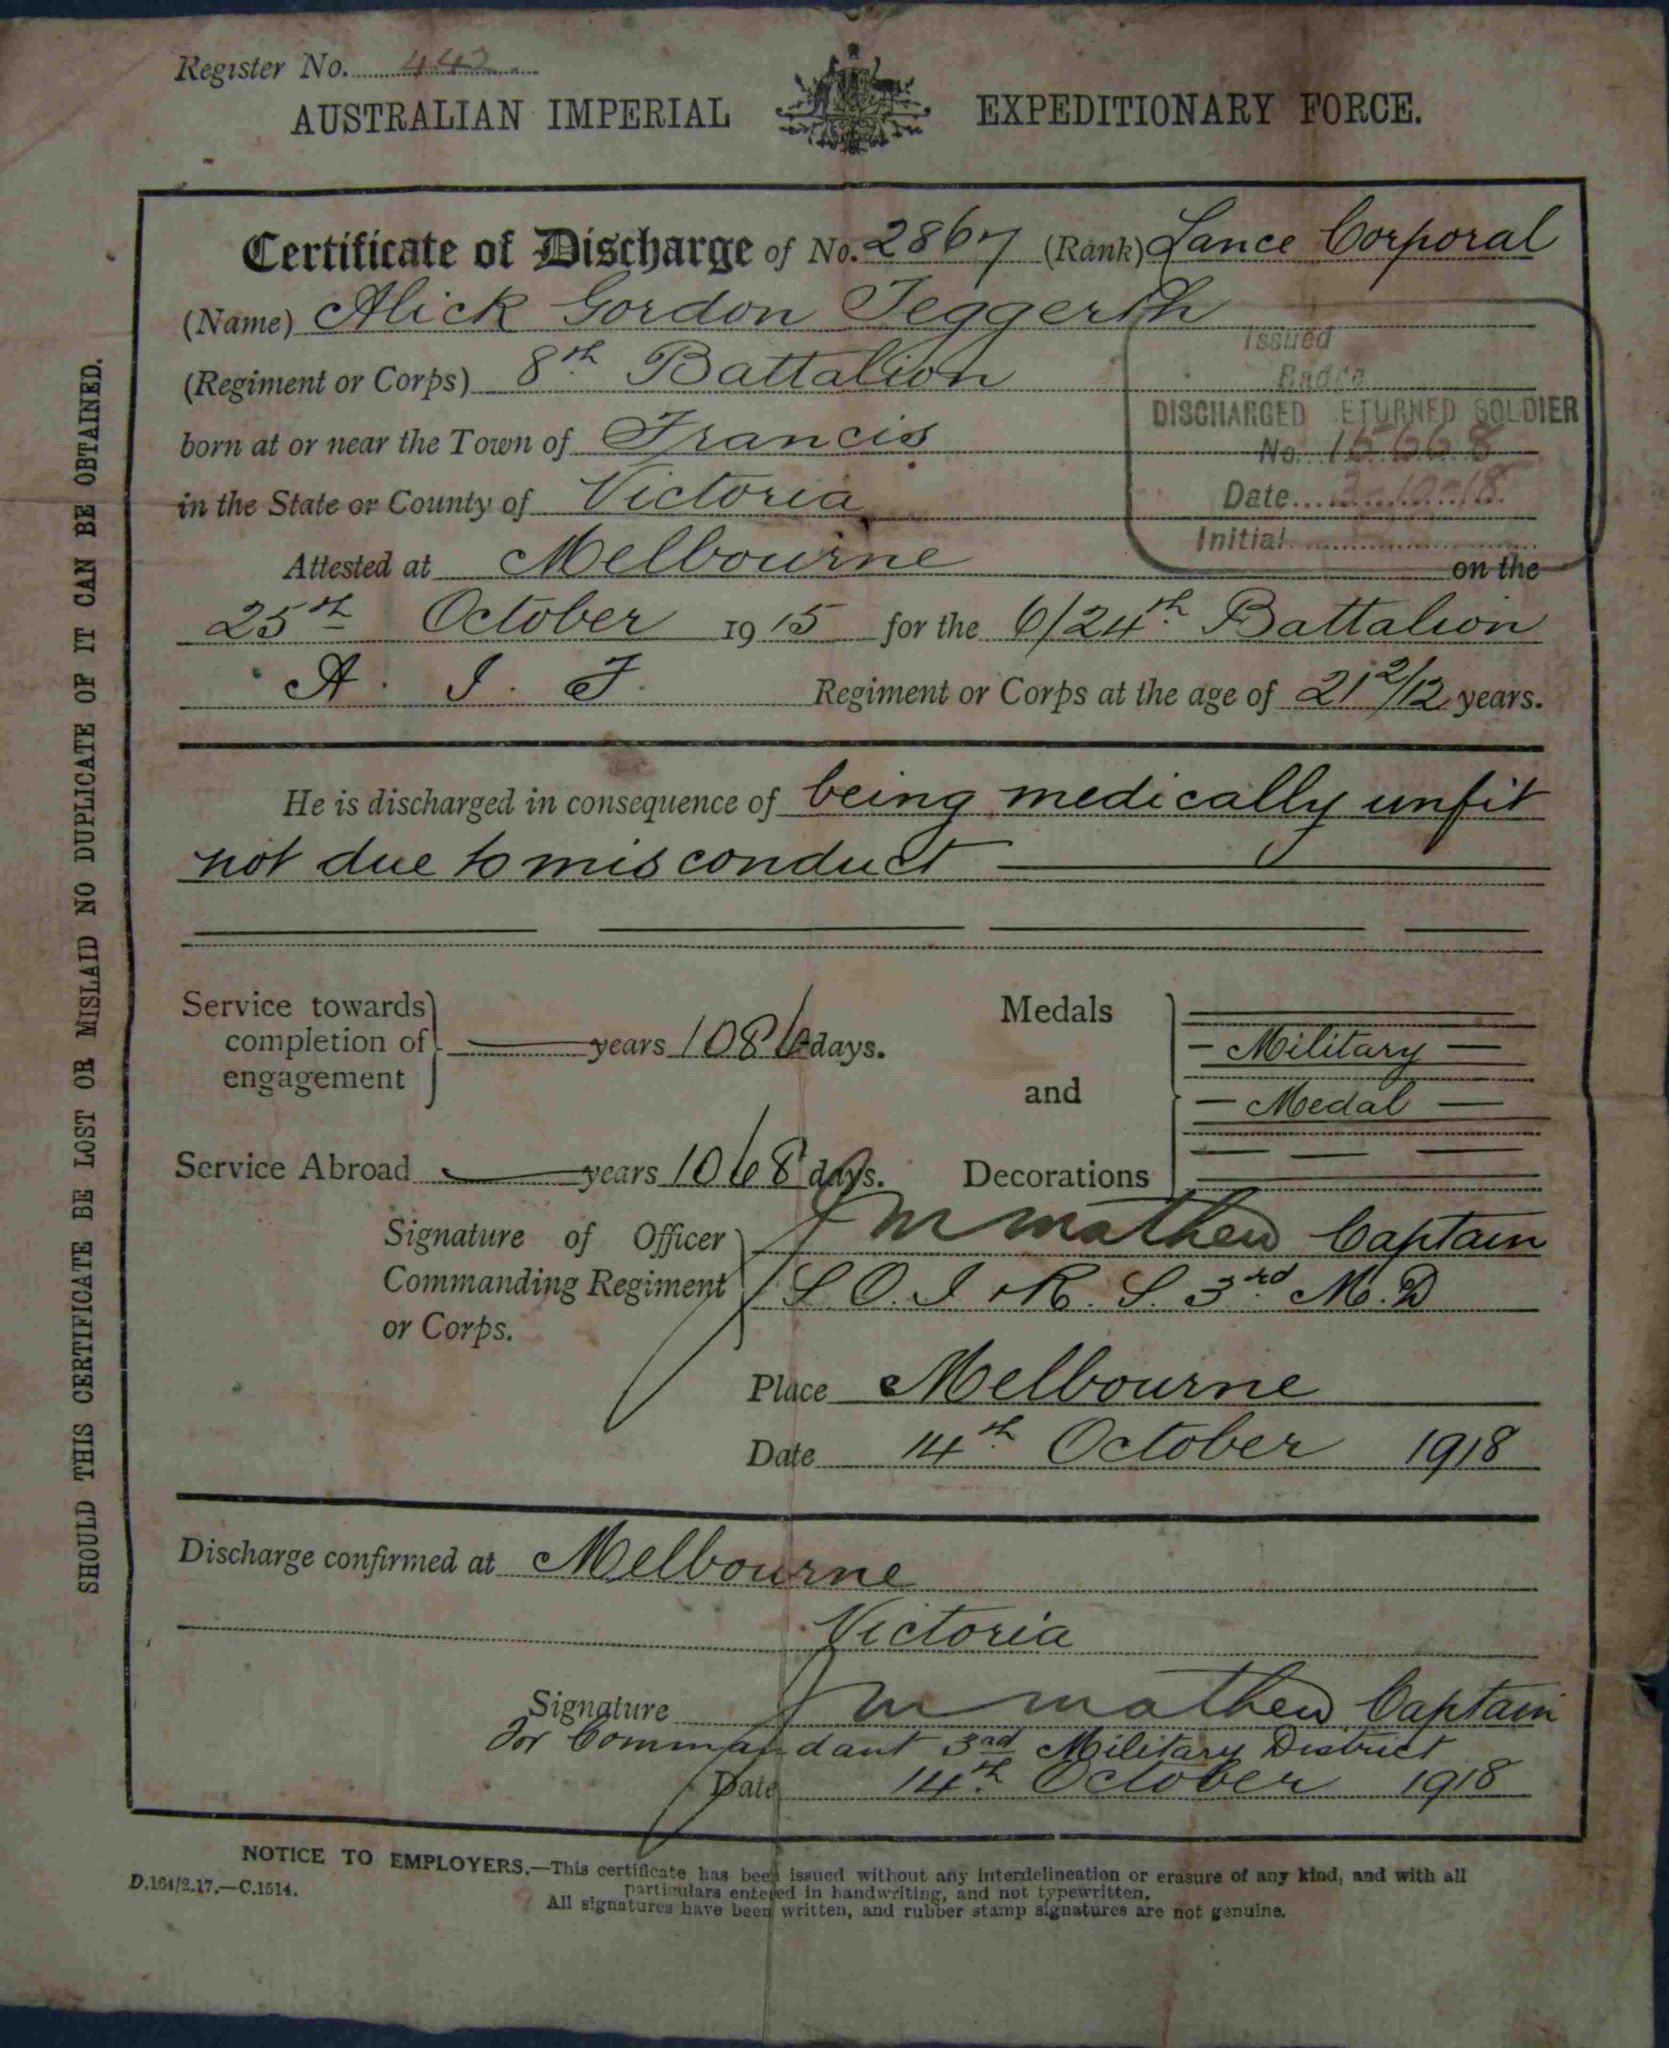 Register No. 442
AUSTRALIAN IMPERIAL EXPEDITIONARY FORCE.
Certificate of Discharge of No. 2867 (Rank) Lance Corporal
(Name) Alick Gordon Teggerth
(Regiment or Corps) 8th Battalion
born at or near the Town of Francis
in the State or County of Victoria
Issued
Badge
DISCHARGED ETURNED SOLDIER
No. 15668
Date 3-10-18
Initial
Attested at Melbourne on the
25th October 1915 for the 6/24th Battalion
A. I. F. Regiment or Corps at the age of 21 2/12 years.
He is discharged in consequence of being medically unfit
not due to misconduct
Service towards completion of engagement years 1086 days.
Service Abroad years 1068 days.
Medals and Decorations
Military
Medal
Signature of Officer Commanding Regiment or Corps.
J M Mathew Captain
S. O. I & R. S. 3rd M. D
Place Melbourne
Date 14th October 1918
Discharge confirmed at Melbourne
Victoria
Signature J M Mathew Captain
for Commandant 3rd Military District
Date 14th October 1918
NOTICE TO EMPLOYERS.—This certificate has been issued without any interdelineation or erasure of any kind, and with all
particulars entered in handwriting, and not typewritten.
All signatures have been written, and rubber stamp signatures are not genuine.
D.164/2.17.—C.1514.
SHOULD THIS CERTIFICATE BE LOST OR MISLAID NO DUPLICATE OF IT CAN BE OBTAINED.